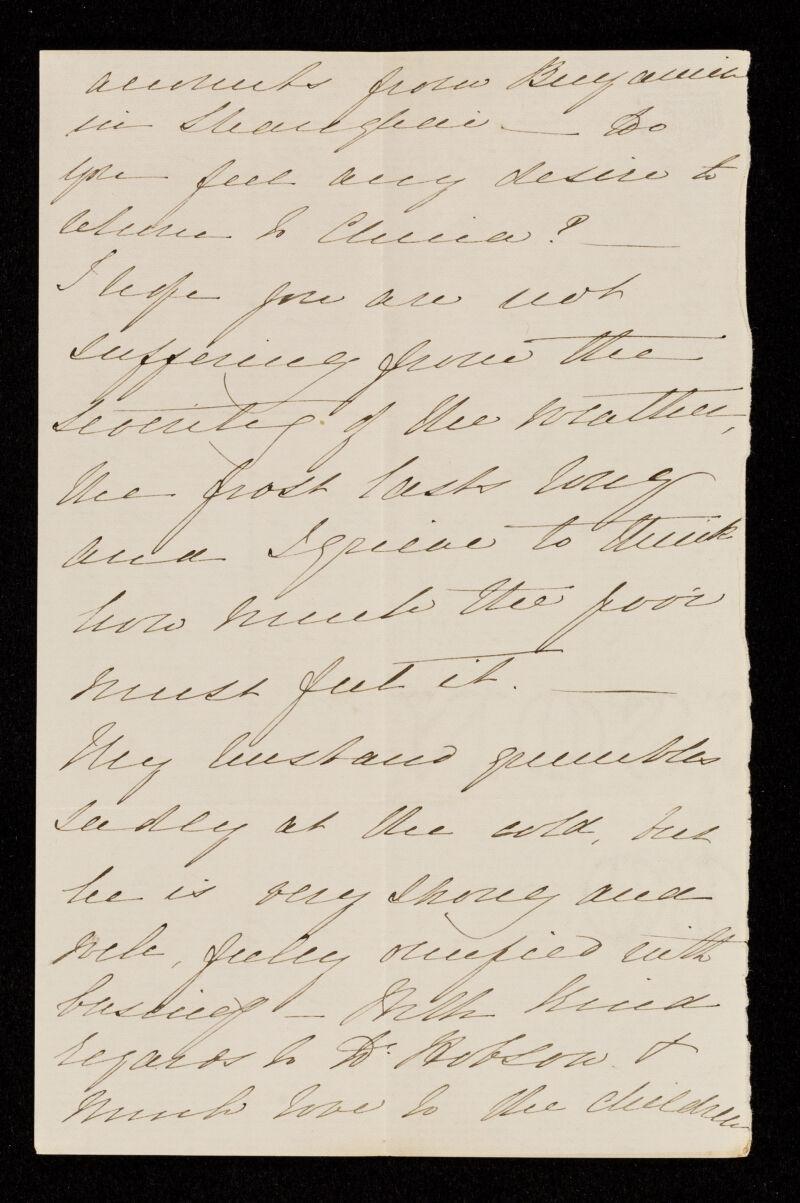 accounts from Benjamin
in Shanghai — Do
you feel any desire to
return to China? —
I hope you are not
suffering from the
severity of the weather,
the frost lasts long
and I grieve to think
how much the poor
must feel it. —
My husband grumbles
sadly at the cold, but
he is very strong and
well, fully occupied with
business — With kind
regards to Dr. Hobson &
much love to the children